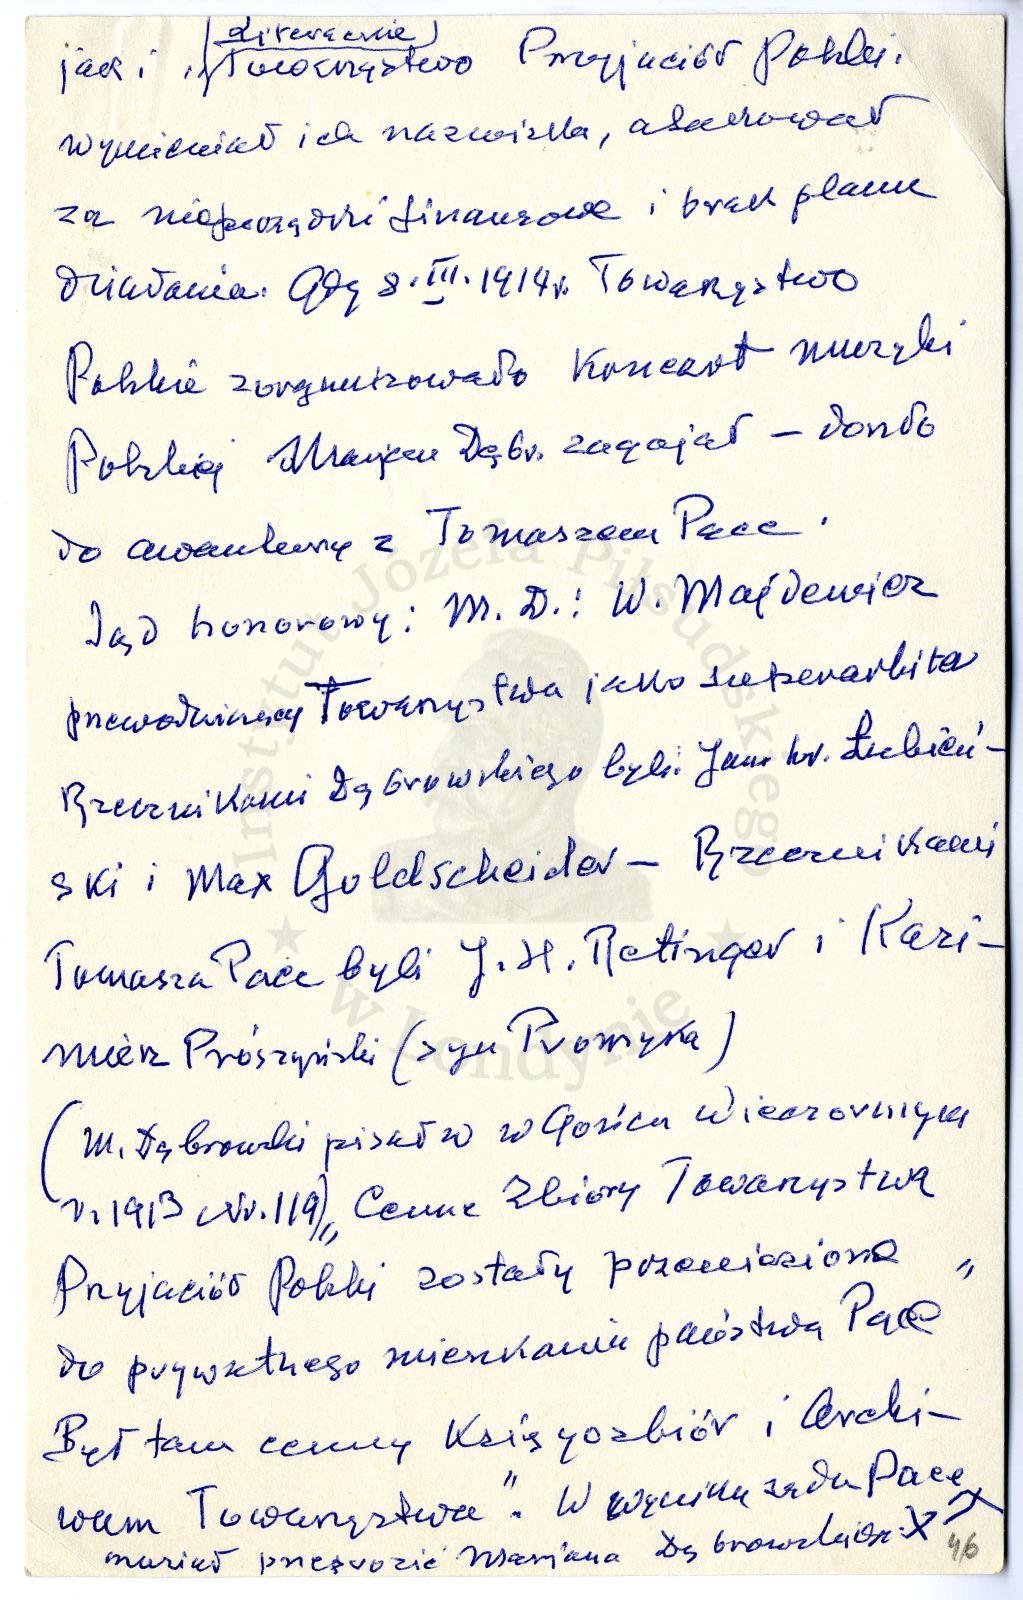 (Literackie)
jak i „Towarzystwo Przyjaciół Polski.
wymieniał ich nazwiska, atakował
za nieporządki finansowe i brak planu
działania. Gdy 8.III.1914r. Towarzystwo
Polskie zorganizowało Koncert muzyki
Polskiej Marjan Dąbr. zagajał – doszło
do awantury z Tomaszem Pace.
Sąd honorowy: M.D.: W. Majdewicz
przewodniczący Towarzystwa jako superarbiter
Rzecznikami Dąbrowskiego byli: Jan hr. Łubień-
ski i Max Goldscheider – Rzecznikami
Tomasza Pace byli J.H. Retinger i Kazi-
mierz Prószyński (syn Promyka)
(M. Dąbrowski pisał w w Gońcu Wieczornym
r. 1913 Nr. 119) „Cenne Zbiory Towarzystwa
Przyjaciół Polski zostały przeniesione "
do prywatnego mieszkania państwa Pace
Był tam cenny Księgozbiór i Archi-
wum Towarzystwa". W wyniku sądu Pace
musiał przeprosić Marjana Dąbrowskiego. X
46
Instytut Józefa Piłsudskiego
w Londynie